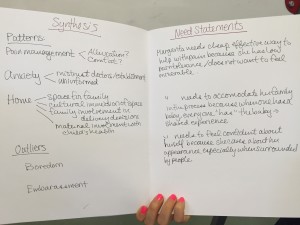 Synthesis
Patterns:
Pain management < Alleviation?
Control?
Anxiety < mistrust doctors/establishment
uninformed
Home < space for family
cultural immersion of space
family involvement in
delivery decisions
maternal investment with
child's health
Outliers
Boredom
Embarassment
Need Statements
Margents needs cheap effective way to
help with pain because she has low
pain tolerance/does not want to feel
miserable.
" needs to accomodate kin/family
in the process because when one has a
baby, everyone "has" the baby →
shared experience
" needs to feel confident about
herself because she cares about her
appearance, especially when surrounded
by people.